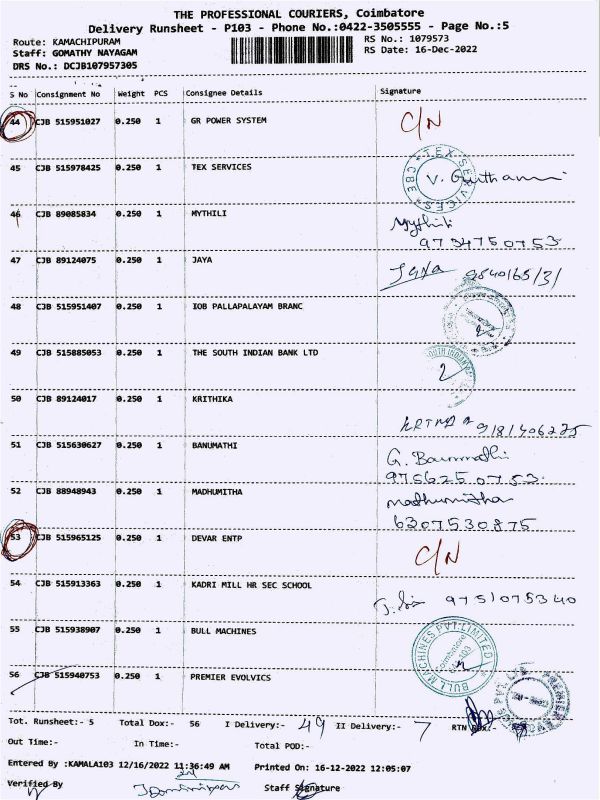 THE PROFESSIONAL COURIERS, Coimbatore
Delivery Runsheet - P103 - Phone No.:0422-3505555 - Page No.:5
Route: KAMACHIPURAM
RS No.: 1079573
Staff: GOMATHY NAYAGAM
RS Date: 16-Dec-2022
DRS No.: DCJB107957305
S No Consignment No Weight PCS Consignee Details Signature
44 CJB 515951027 0.250 1 GR POWER SYSTEM C/N
45 CJB 515978425 0.250 1 TEX SERVICES TEX SERVICES CBE
46 CJB 89085834 0.250 1 MYTHILI Mythili
9734750753
47 CJB 89124075 0.250 1 JAYA Jaya 9840165131
48 CJB 515951407 0.250 1 IOB PALLAPALAYAM BRANC
49 CJB 515885053 0.250 1 THE SOUTH INDIAN BANK LTD
50 CJB 89124017 0.250 1 KRITHIKA
51 CJB 515630627 0.250 1 BANUMATHI G.
9756250753
52 CJB 88948943 0.250 1 MADHUMITHA madhumitha
6307530875
53 CJB 515965125 0.250 1 DEVAR ENTP C/N
54 CJB 515913363 0.250 1 KADRI MILL HR SEC SCHOOL 9751075340
55 CJB 515938907 0.250 1 BULL MACHINES BULL MACHINES PVT LIMITED
56 CJB 515940753 0.250 1 PREMIER EVOLVICS
Tot. Runsheet:- 5 Total Dox:- 56 I Delivery:- 49 II Delivery:- 7 RTN Dox:-
Out Time:- In Time:- Total POD:-
Entered By :KAMALA103 12/16/2022 11:36:49 AM Printed On: 16-12-2022 12:05:07
Verified By Staff Signature